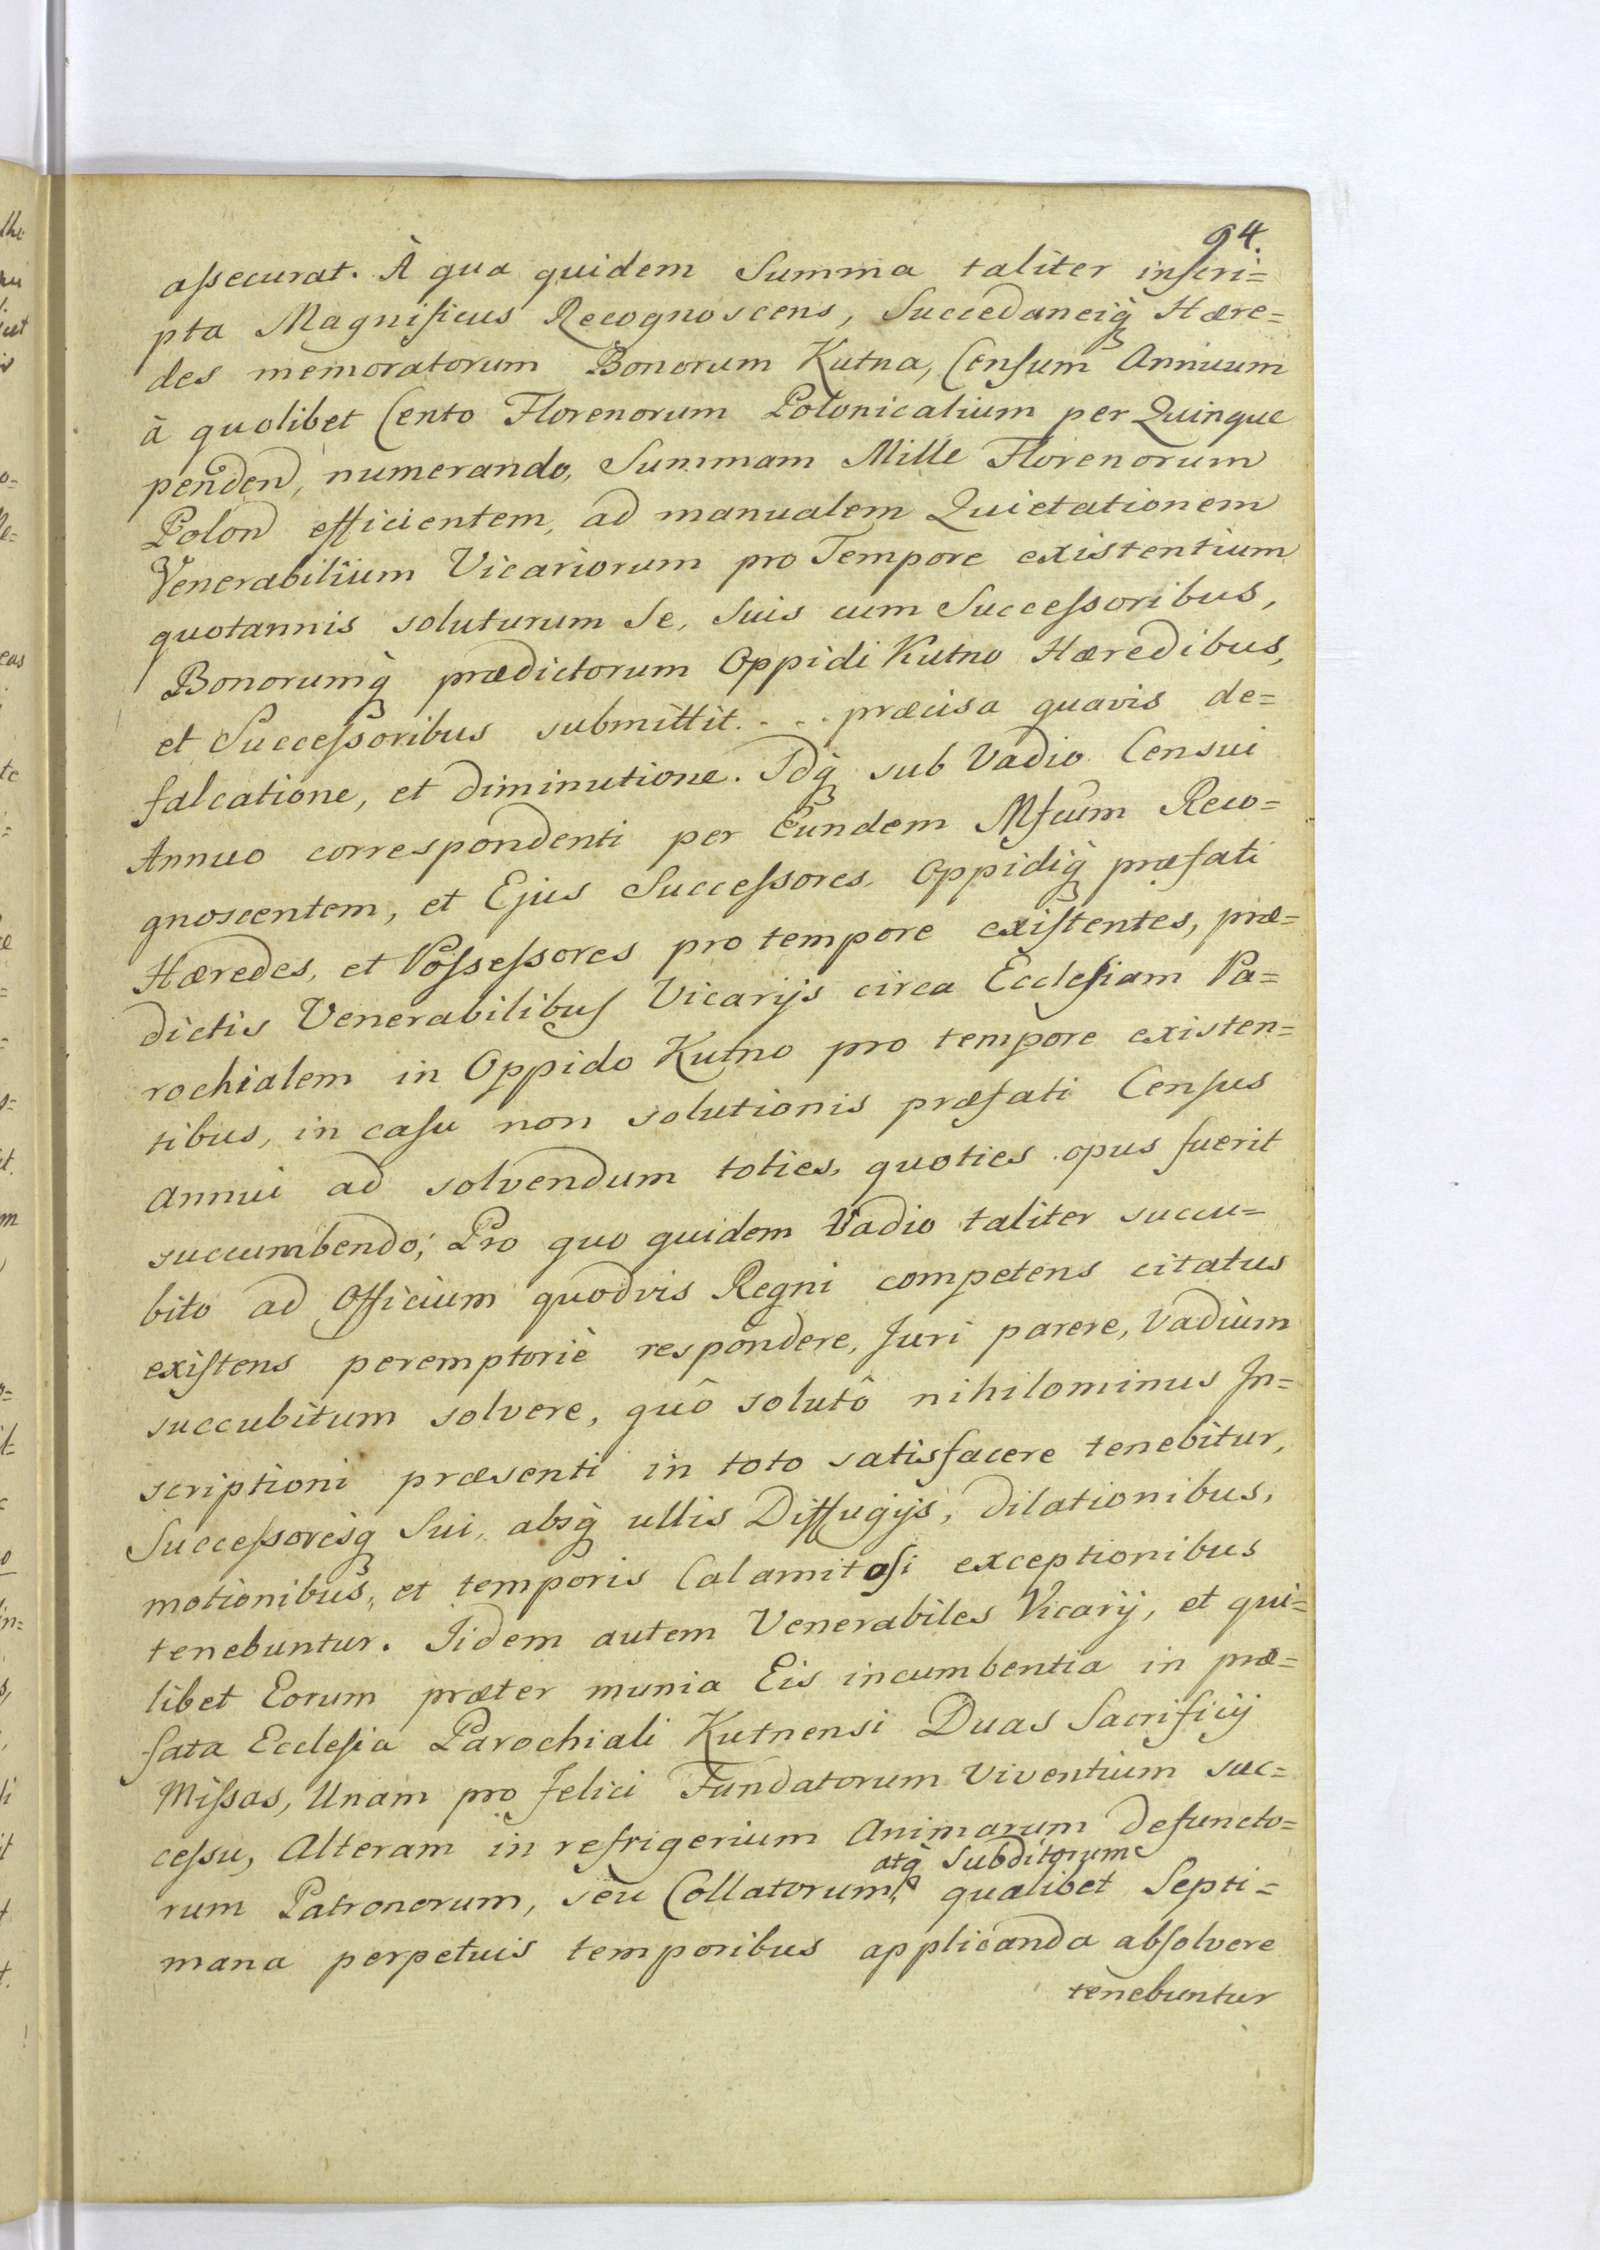 94.
aſsecurat. À qua quidem Summa taliter inſcri=
pta Magnificus Recognoscens, Succedaneiq̃ Hære=
des memoratorum Bonorum Kutna, Cenſum Annuum
à quolibet Cento Florenorum Polonicalium per Quinque
penden̄d, numerando, Summam Mille Florenorum
Polon̄ efficientem, ad manualem Quietationem
Venerabilium Vicariorum pro Tempore existentium
quotannis soluturum Se, Suis cum Succeſsoribus,
Bonorumq̃ prædictorum Oppidi Kutno Hæredibus,
et Succeſsoribus submittit. . . . præcisa quavis de=
falcatione, et diminutione. Idq̃ sub Vadio Censui
Annuo correspondenti per Eundem Mfcum Reco=
gnoscentem, et Ejus Succeſsores, Oppidiq̃ præfati
Hæredes, et Poſseſsores pro tempore exiſtentes, præ=
dictis Venerabilibuſ Vicarijs circa Eccleſiam Pa=
rochialem in Oppido Kutno pro tempore existen=
tibus, in caſu non solutionis præfati Cenſus
Annui ad solvendum toties, quoties opus fuerit
succumbendo; Pro quo quidem Vadio taliter succu=
bito ad Officium quodvis Regni competens citatus
exiſtens peremptoriè respondere, Juri parere, Vadium
succubitum solvere, quô solutô nihilominus In=
scriptioni præsenti in toto satisfacere tenebitur,
Succeſsoresq̃ Sui, absq̃ ullis Diffugijs, dilationibus,
motionibus, et temporis Calamitoſi exceptionibus
tenebuntur. Iidem autem Venerabiles Vicarij, et qui=
libet Eorum præter munia Eis incumbentia in præ=
fata Eccleſia Parochiali Kutnensi Duas Sacrificij
Miſsas, Unam pro felici Fundatorum Viventium suc=
ceſsu, Alteram in refrigerium Animarum Defuncto=
atq̃ Subditorum
rum Patronorum, seu Collatorum, qualibet Septi=
mana perpetuis temporibus applicanda abſolvere
tenebuntur